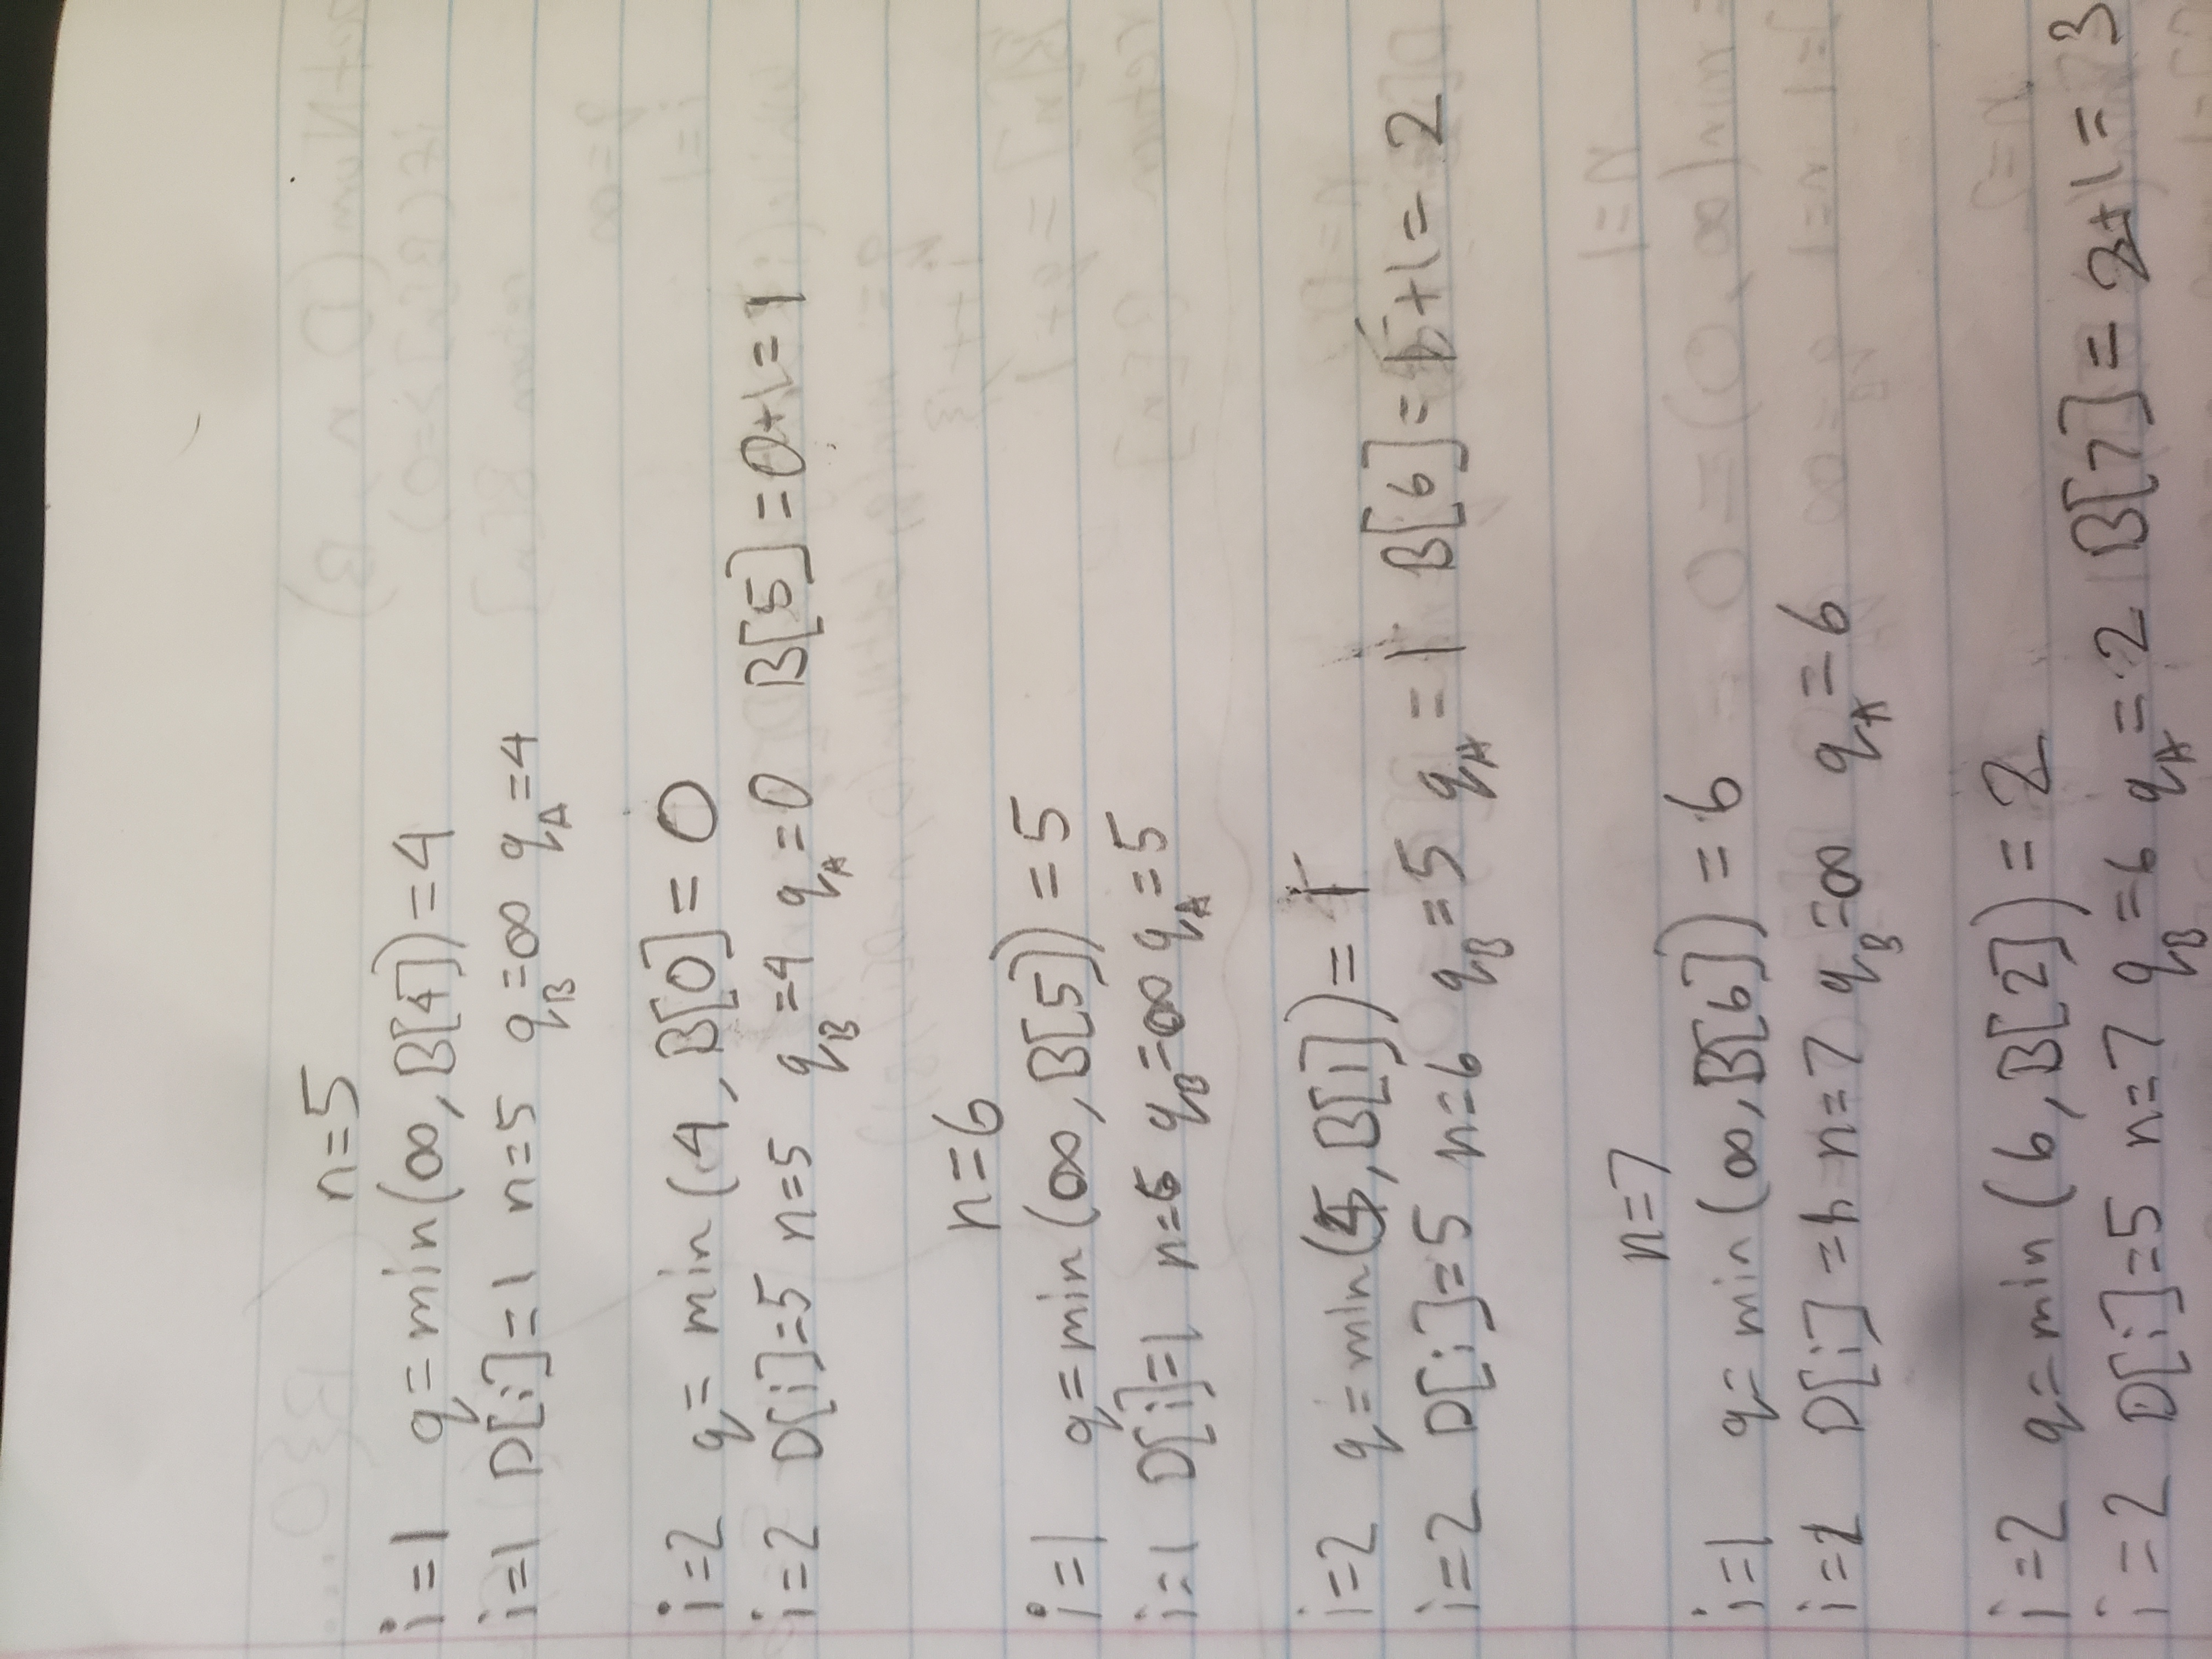 n=5
i=1 q=min(∞, B[4])=4
i=1 D[i]=1 n=5 q_B=∞ q_A=4
i=2 q= min(4, B[0]= 0
i=2 D[i]=5 n=5 q_B=4 q_A=0 B[5]=0+1=1
n=6
i=1 q=min(∞, B[5])=5
i=1 D[i]=1 n=6 q_B=∞ q_A=5
i=2 q=min(5, B[1])=1
i=2 D[i]=5 n=6 q_B=5 q_A=1 B[6]=1+1=2
n=7
i=1 q= min(∞, B[6])=6
i=1 D[i]=1 n=7 q_B=∞ q_A=6
i=2 q=min(6, B[2])=2
i=2 D[i]=5 n=7 q_B=6 q_A=2 B[7]=2+1=3